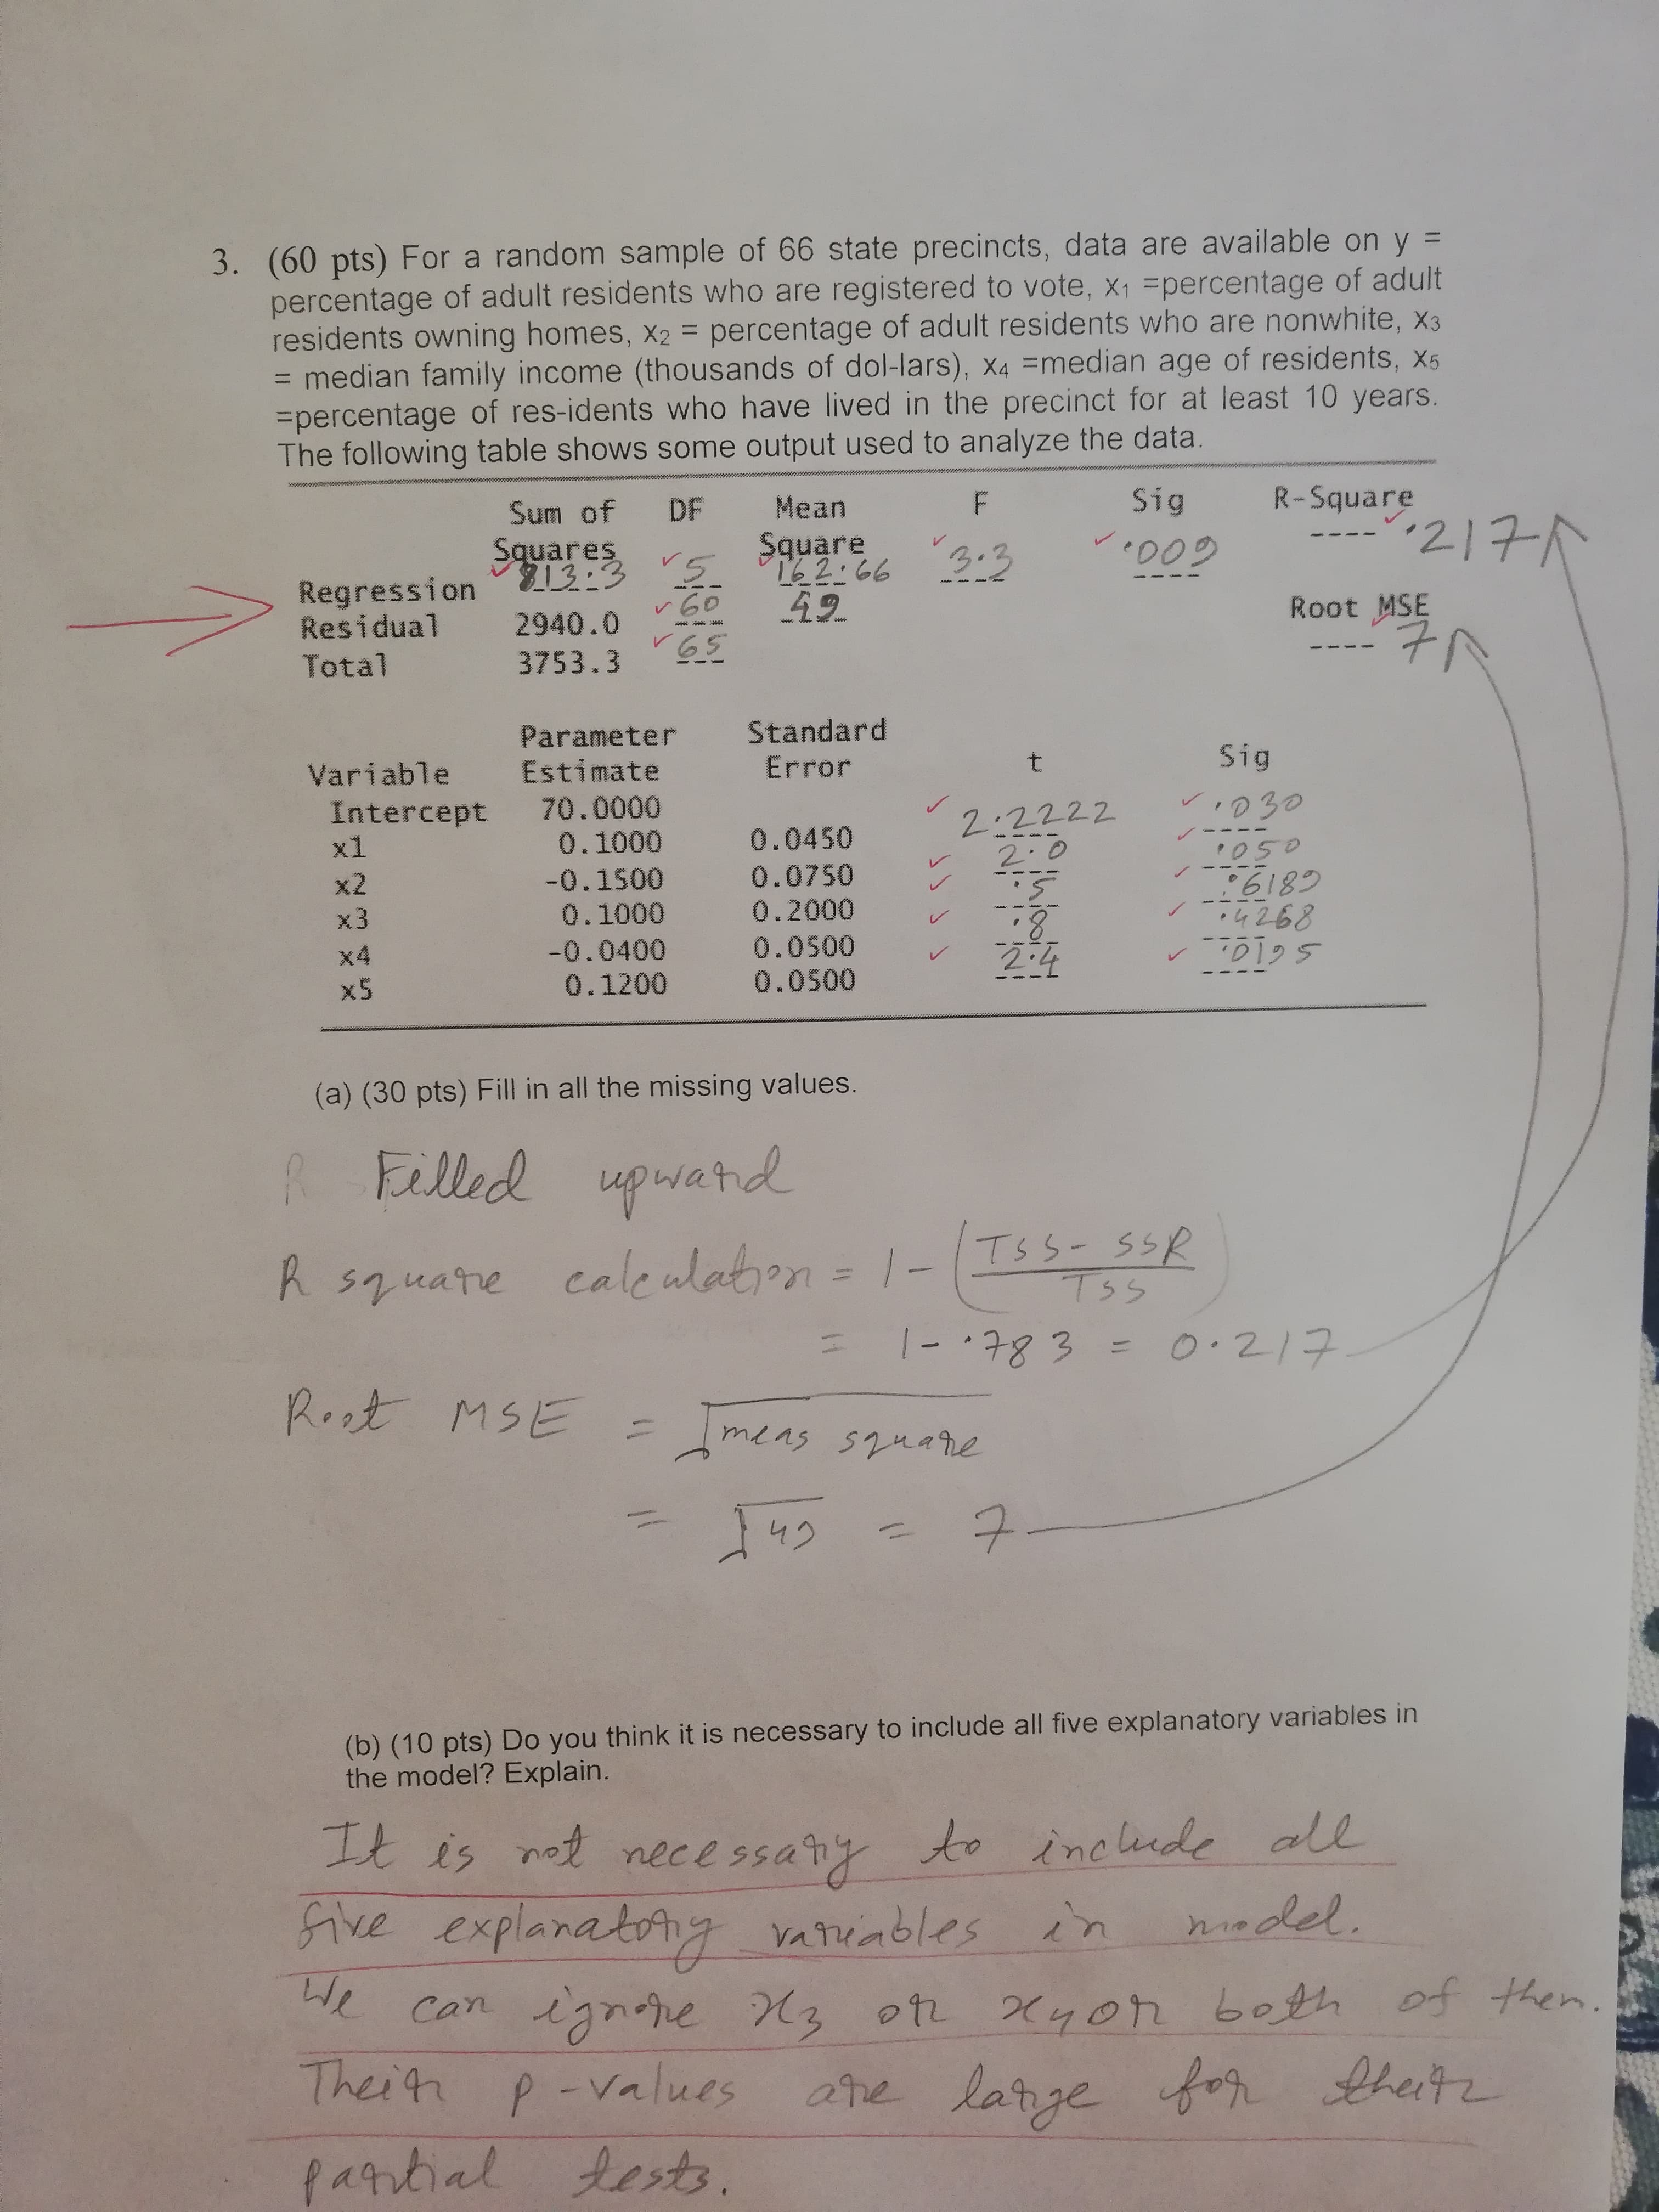 3. (60 pts) For a random sample of 66 state precincts, data are available on y =
percentage of adult residents who are registered to vote, x₁ =percentage of adult
residents owning homes, x₂ = percentage of adult residents who are nonwhite, x₃
= median family income (thousands of dol-lars), x₄ =median age of residents, x₅
=percentage of res-idents who have lived in the precinct for at least 10 years.
The following table shows some output used to analyze the data.
Sum of DF Mean F Sig R-Square
Squares Square ---- .217
Regression 813.3 5 162.66 3.3 .009
Residual 2940.0 60 49 Root MSE
Total 3753.3 65 ---- 7
Parameter Standard
Variable Estimate Error t Sig
Intercept 70.0000
x1 0.1000 0.0450 2.2222 .030
x2 -0.1500 0.0750 2.0 .050
x3 0.1000 0.2000 .5 .6189
x4 -0.0400 0.0500 .8 .4268
x5 0.1200 0.0500 2.4 .0195
(a) (30 pts) Fill in all the missing values.
Filled upward
R square calculation = 1 - (TSS - SSR / TSS)
= 1 - .783 = 0.217
Root MSE = √meas square
= √49 = 7
(b) (10 pts) Do you think it is necessary to include all five explanatory variables in
the model? Explain.
It is not necessary to include all
five explanatory variables in model.
We can ignore x₃ or x₄ or both of them.
Their p-values are large for their
partial tests.